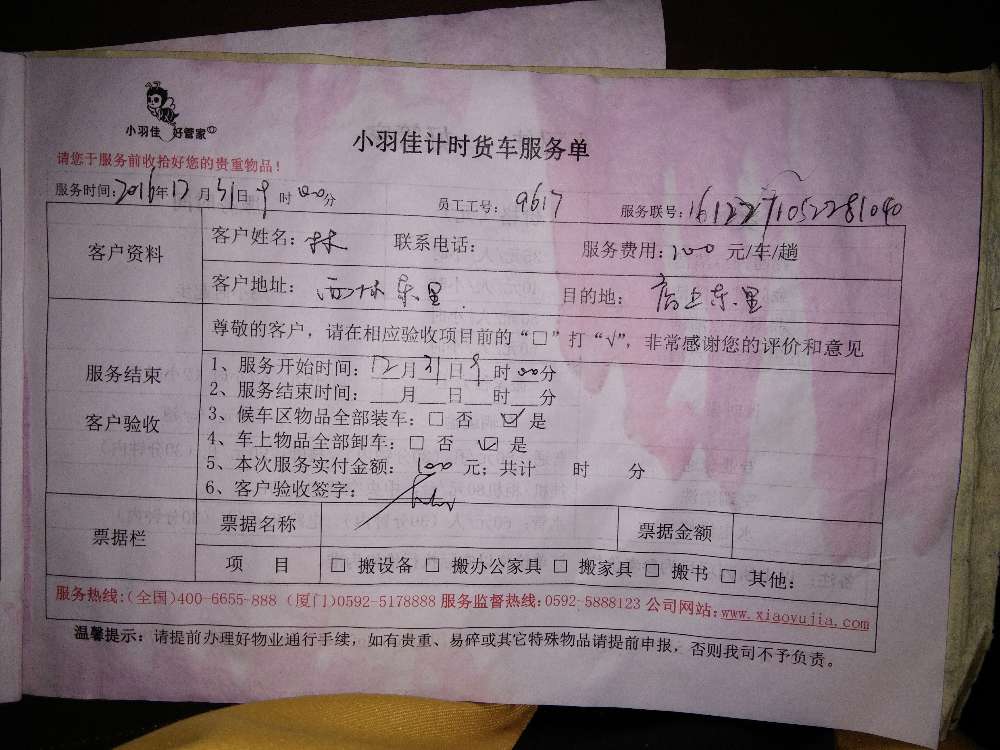 小羽佳 好管家
小羽佳计时货车服务单
请您于服务前收拾好您的贵重物品！
服务时间：2016年12月31日9时00分 员工工号：9617 服务联号：1612271052281040
客户资料
客户姓名：林 联系电话： 服务费用：100元/车/趟
客户地址：西林东里 目的地：店上东里
服务结束
客户验收
尊敬的客户，请在相应验收项目前的“□”打“√”，非常感谢您的评价和意见
1、服务开始时间：12月31日9时00分
2、服务结束时间：___月___日___时___分
3、候车区物品全部装车：□ 否 ☑ 是
4、车上物品全部卸车：□ 否 ☑ 是
5、本次服务实付金额：100元；共计 时 分
6、客户验收签字：
票据栏
票据名称 票据金额
项 目 □ 搬设备 □ 搬办公家具 □ 搬家具 □ 搬书 □ 其他：
服务热线：(全国)400-6655-888 (厦门)0592-5178888 服务监督热线：0592-5888123 公司网站：www.xiaoyujia.com
温馨提示：请提前办理好物业通行手续，如有贵重、易碎或其它特殊物品请提前申报，否则我司不予负责。